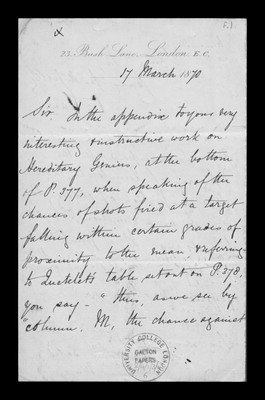 23 Bush Lane, London E.C.
17 March 1870
Sir. In the appendix to your very
interesting & instructive work on
Hereditary Genius, at the bottom
of P. 377, when speaking of the
chances of shots fired at a target
falling within certain grades of
proximity to the mean, & referring
to Quetelet's table set out on P. 378,
you say - "thus, as we see by
"column M, the chance against
UNIVERSITY COLLEGE LONDON
GALTON
PAPERS